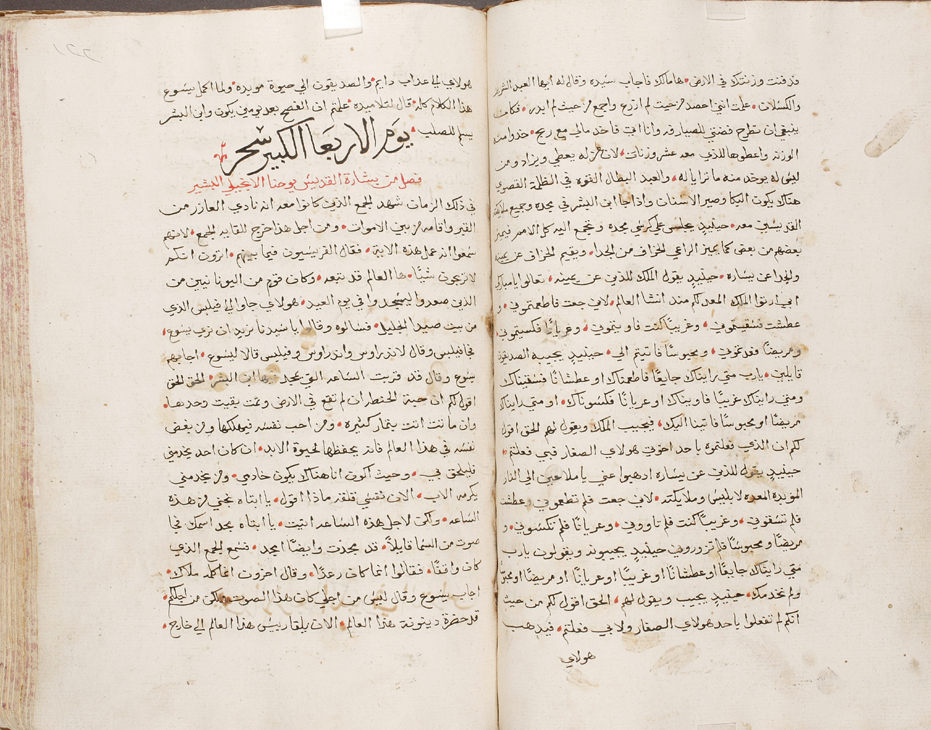 قد فنت وزنتك في الارض هامالك فاجاب سيده وقال له ايها العبد الشرير
والكسلان علمت انني احصد من حيث لم ازرع واجمع من حيث لم ابدر فكان
ينبغي ان تطرح فضتي للصيارفه وانا اتي فاخد مالي مع ربح خدوا منه
الوزنه واعطوها للذي معه عشر وزنات لان من له يعطي ويزاد ومن
ليس له يوخد منه ما ترايا له والعبد البطال القوه في الظلمة القصوي
هناك يكون البكا وصرير الاسنان واذا جا ابن البشر في مجده وجميع ملايكته
القديسين معه حينيدٍ يجلس علي كرسي مجده وتجتمع اليه كل الامم فيميز
بعضهم من بعض كما يميز الراعي الخراف من الجدا ويقيم الخراف عن يمينه
والجدا عن يساره حينيدٍ يقول الملك للذي عن يمينه تعالوا يا مباركي
ابي ارتوا الملك المعد لكم مند انشا العالم لاني جعت فاطعمتموني و
عطشت فسقيتموني وغريبًا كنت فاويتموني وعريانًا فكسيتموني
ومريضًا فعدتموني ومحبوسًا فاتيتم الي حينيدٍ يجيبه الصديقون
قايلين يارب متي رايناك جايعًا فاطعمناك او عطشانًا فسقيناك
ومتي رايناك غريبًا فاويناك او عريانًا فكسوناك او متي رايناك
مريضًا او محبوسًا فاتينا اليك فيجيب الملك ويقول لهم الحق اقول
لكم ان الذي فعلتموه باحد اخوتي هولاي الصغار فبي فعلتم
حينيدٍ يقول للذي عن يساره ادهبوا عني يا ملاعين الي النار
الموبده المعده لابليس وملايكته لاني جعت فلم تطعموني وعطشت
فلم تسقوني وغريبًا كنت فلم تاووني وعريانًا فلم تكسوني و
مريضًا ومحبوسًا فلم تزوروني حينيدٍ يجيبونه ويقولون يارب
متي رايناك جايعًا او عطشانًا او غريبًا او عريانًا او مريضًا او محبوسًا
ولم نخدمك حينيدٍ يجيب ويقول لهم الحق اقول لكم من حيث
انكم لم تفعلوا باحد هولاي الصغار ولا بي فعلتم فيدهب
هولاي
هولاي الي عداب دايم والصديقون الي حيوة موبده ولما اكمل يسوع
هذا الكلام كله قال لتلاميده علمتم ان الفصح بعد يومين يكون وابن البشر
يسلم للصلب
يوم الاربعا الكبير سحر
فصل من بشارة القديس يوحنا الانجيلي البشير
في ذلك الزمان شهد للجمع الذين كانوا معه انه نادي العازر من
القبر واقامه من بين الاموات ومن اجل هذا خرج للقايه الجمع لانهم
سمعوا انه عمل هذه الايه فقال الفريسيون فيما بينهم اترون انكم
لا تربحون شيًا ها العالم قد تبعه وكان قوم من اليونانيين من
الذين صعدوا ليسجدوا في يوم العيد هولاي جاوا الي فيلبس الذي
من بيت صيدا الجليل فسالوه وقالوا يا سيدنا نريد ان نري يسوع
فجا فيلبس وقال لاندراوس واندراوس وفيلبس قالا ليسوع اجابهم
يسوع وقال قد قربت الساعه التي يمجد فيها ابن البشر الحق الحق
اقول لكم ان حبة الحنطه ان لم تقع في الارض وتمت بقيت وحدها
وان ماتت اتت بثمار كثيره ومن احب نفسه فيهلكها ومن بغض
نفسه في هذا العالم فانه يحفظها لحيوة الابد ان كان احد يخدمني
فليلحق بي وحيث اكون انا هناك يكون خادمي ومن يخدمني
يكرمه الاب الان نفسي قلقه ماذا اقول يا ابتاه نجني من هذه
الساعه ولكن لاجل هذه الساعه اتيت يا ابتاه مجد اسمك فجا
صوت من السما قايلًا قد مجدت وايضًا امجد فسمع الجمع الذي
كان واقفًا فقالوا انما كان رعدًا وقال اخرون انما كلمه ملاك
اجاب يسوع وقال ليس من اجلي كان هذا الصوت لكن من اجلكم
قد حضرة دينونة هذا العالم الان يلقا رييس هذا العالم الي خارج